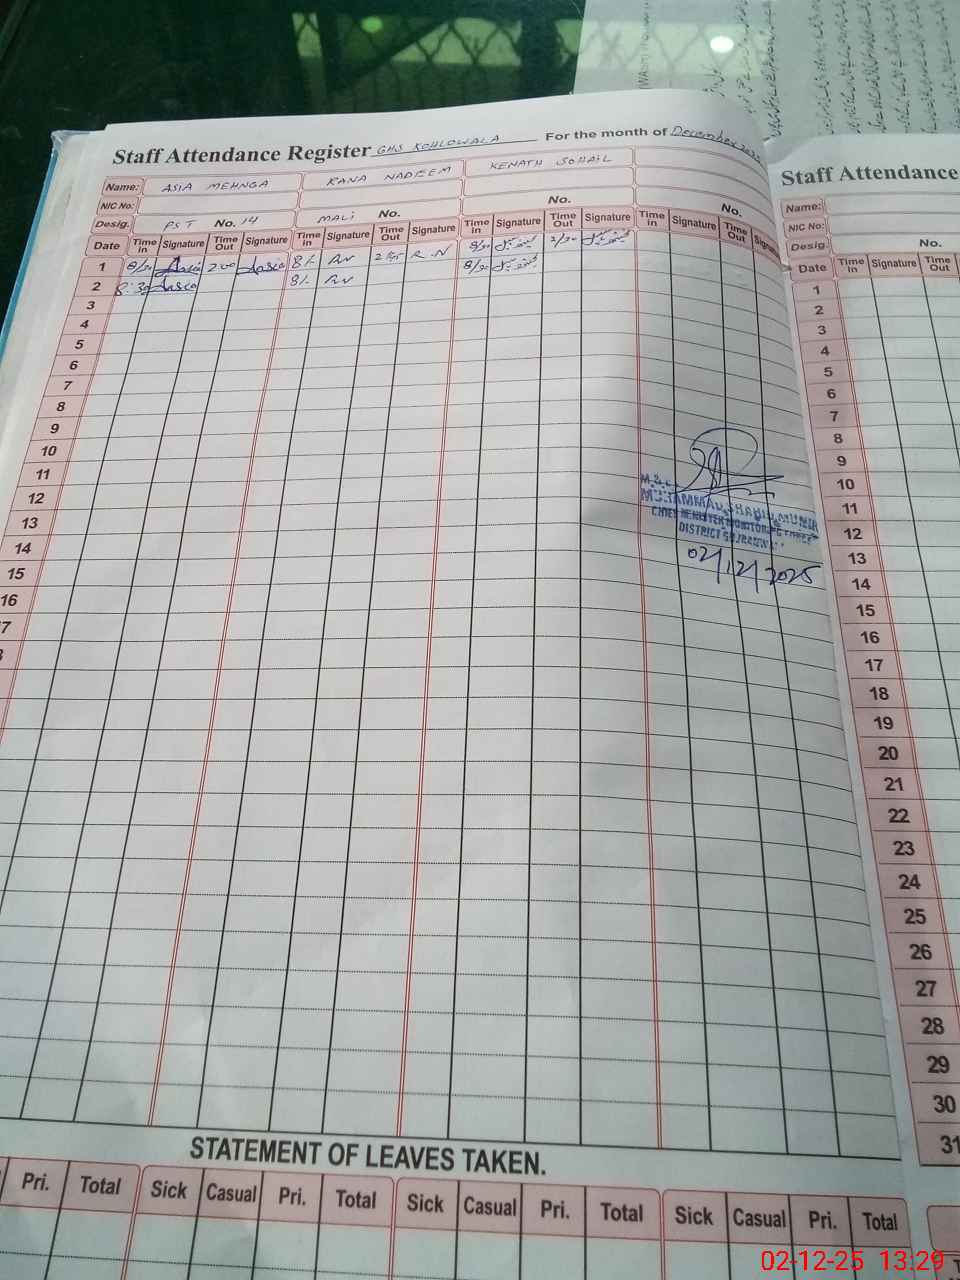 Staff Attendance Register GHS KOHLOWALA For the month of December 2025
Name: ASIA MEHNGA RANA NADEEM KENATH SOHAIL
NIC No:
Desig. PST No. 14 MALI No. No. No.
Date Time in Signature Time Out Signature Time in Signature Time Out Signature Time in Signature Time Out Signature Time in Signature Time Out
1 8/30 Asia 2:00 Aasia 8/- RN R.N 8/30 2/30
2 8:30 Aasia 8/- RN 8/30
3
4
5
6
7
8
9
10
11
12
13
14
15
16
7
STATEMENT OF LEAVES TAKEN.
Pri. Total Sick Casual Pri. Total Sick Casual Pri. Total Sick Casual Pri. Total
CHIEF MINISTER MONITORING FORCE
DISTRICT
02/12/2025
Staff Attendance
Name:
NIC No:
Desig. No.
Date Time in Signature Time Out
1
2
3
4
5
6
7
8
9
10
11
12
13
14
15
16
17
18
19
20
21
22
23
24
25
26
27
28
29
30
31
02-12-25 13:29